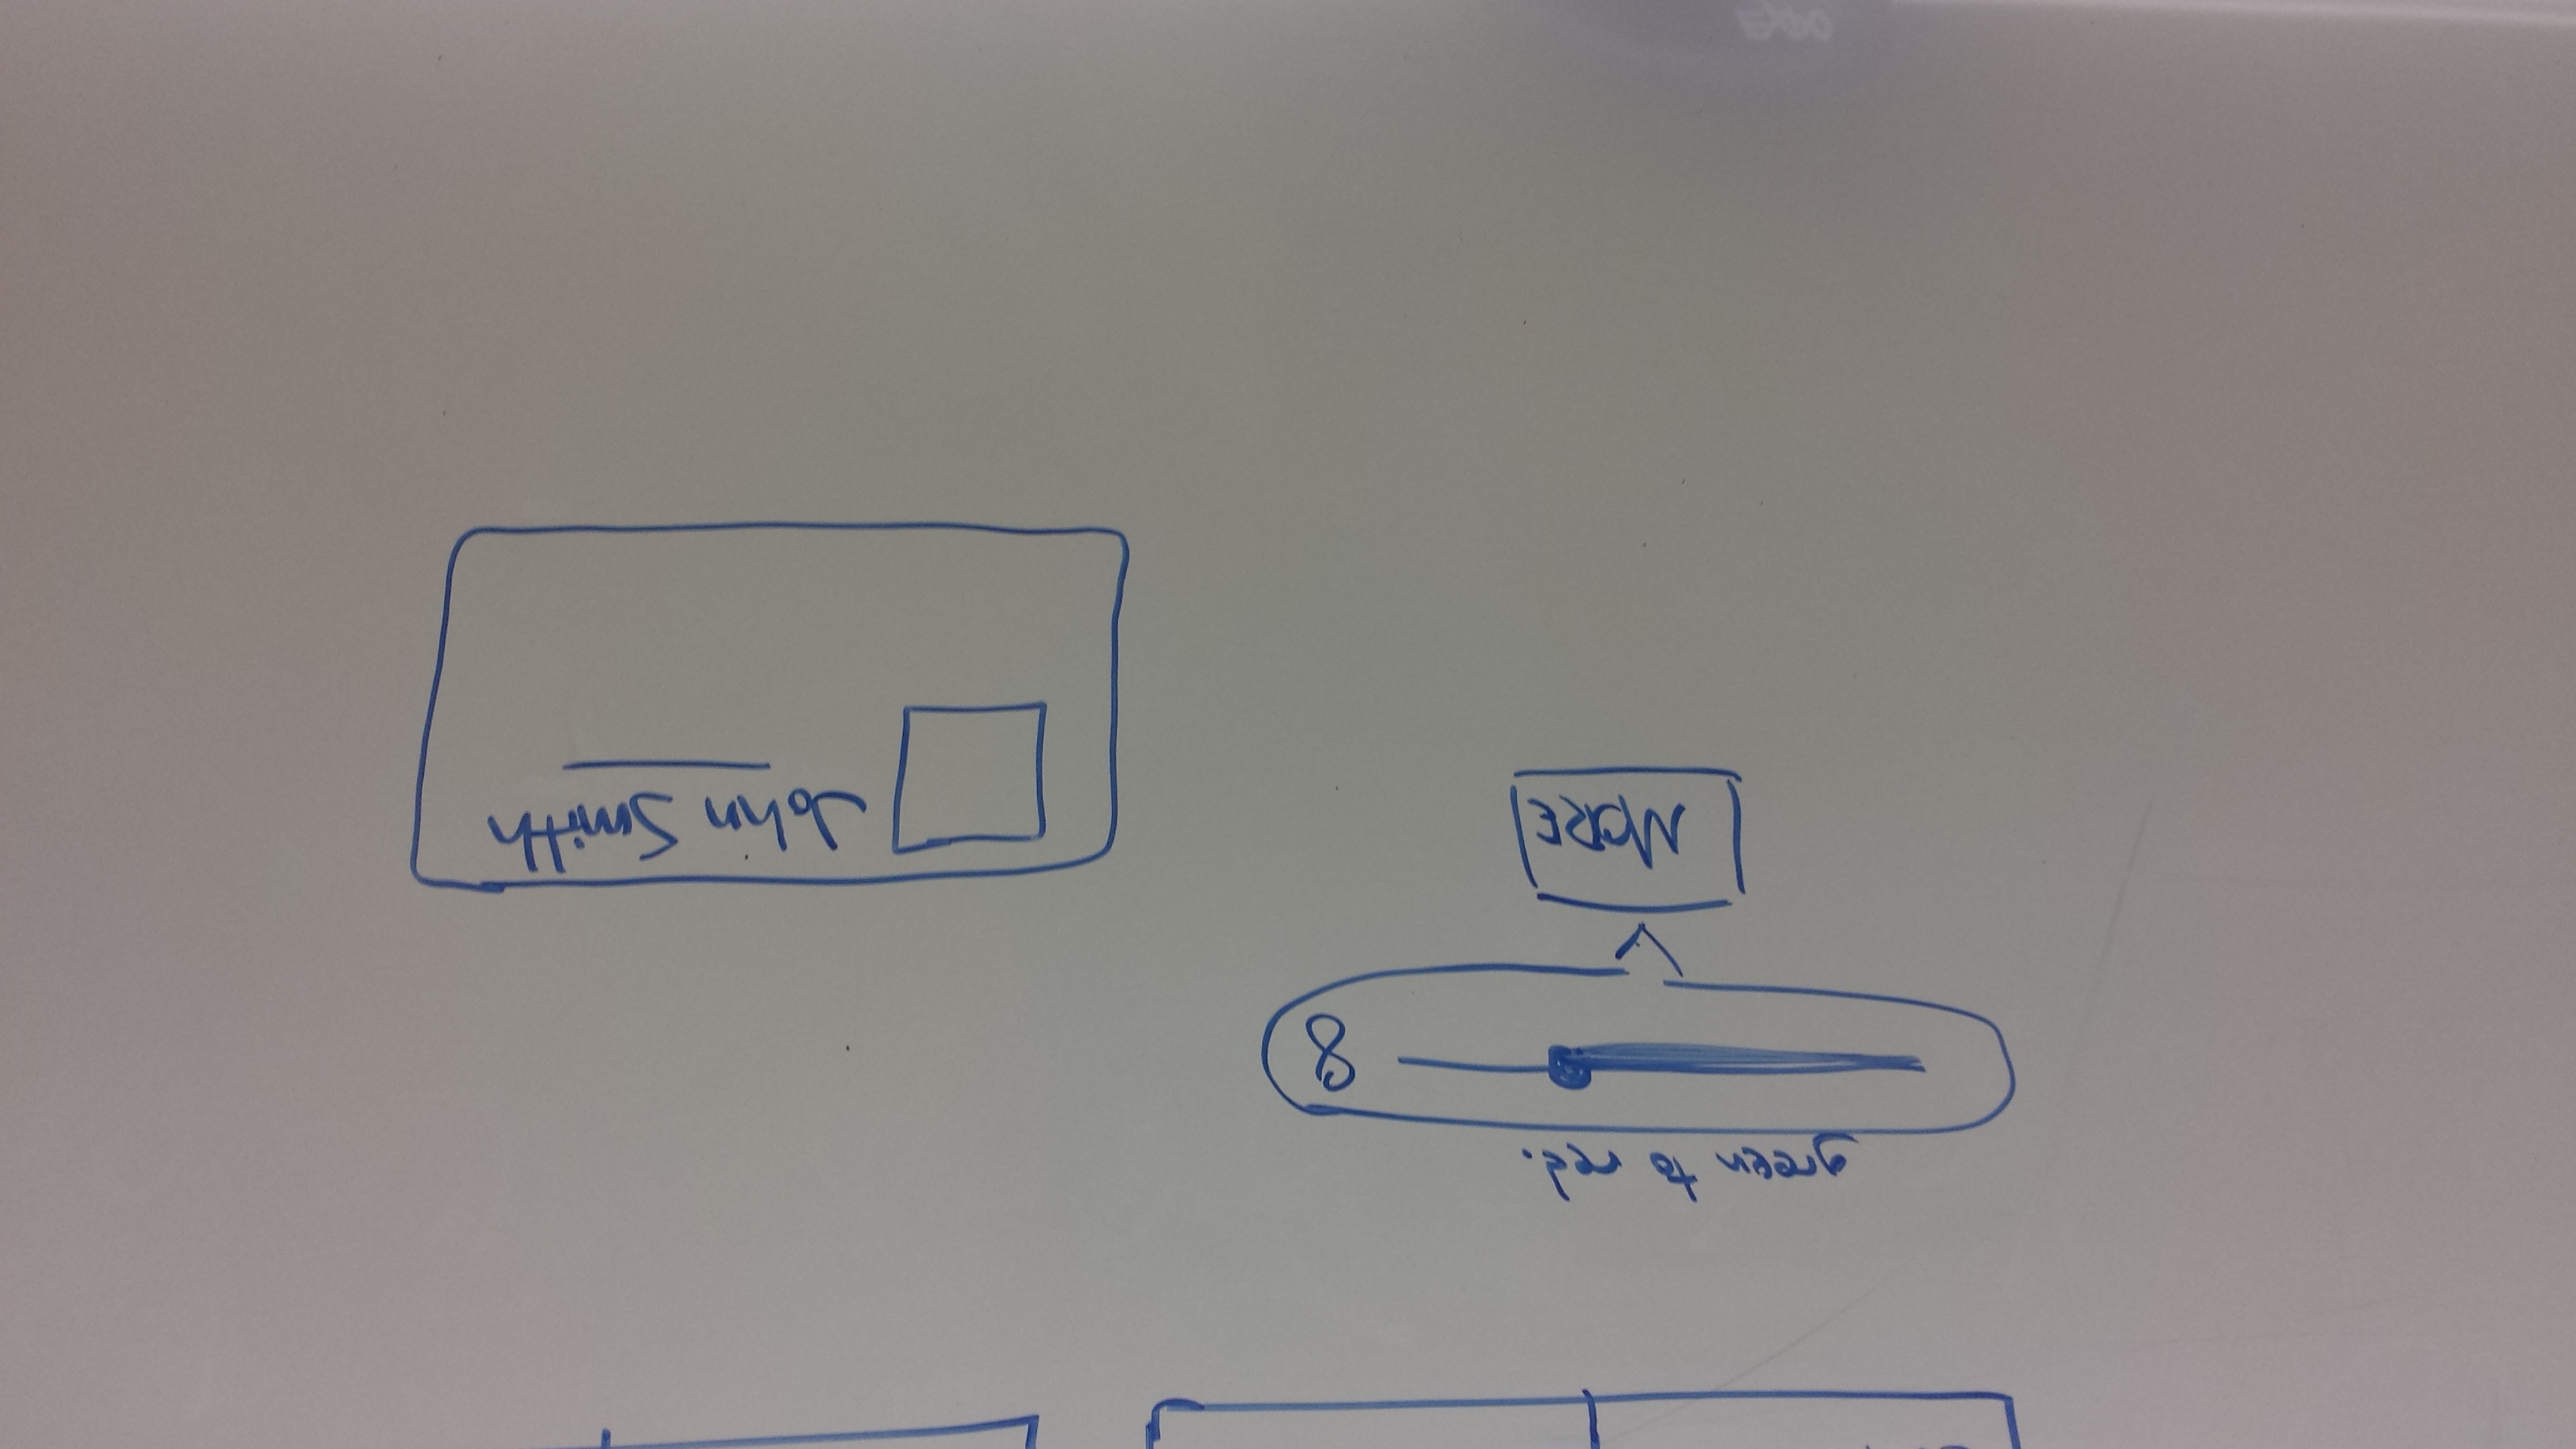 green to red.
8
MORE
John Smith